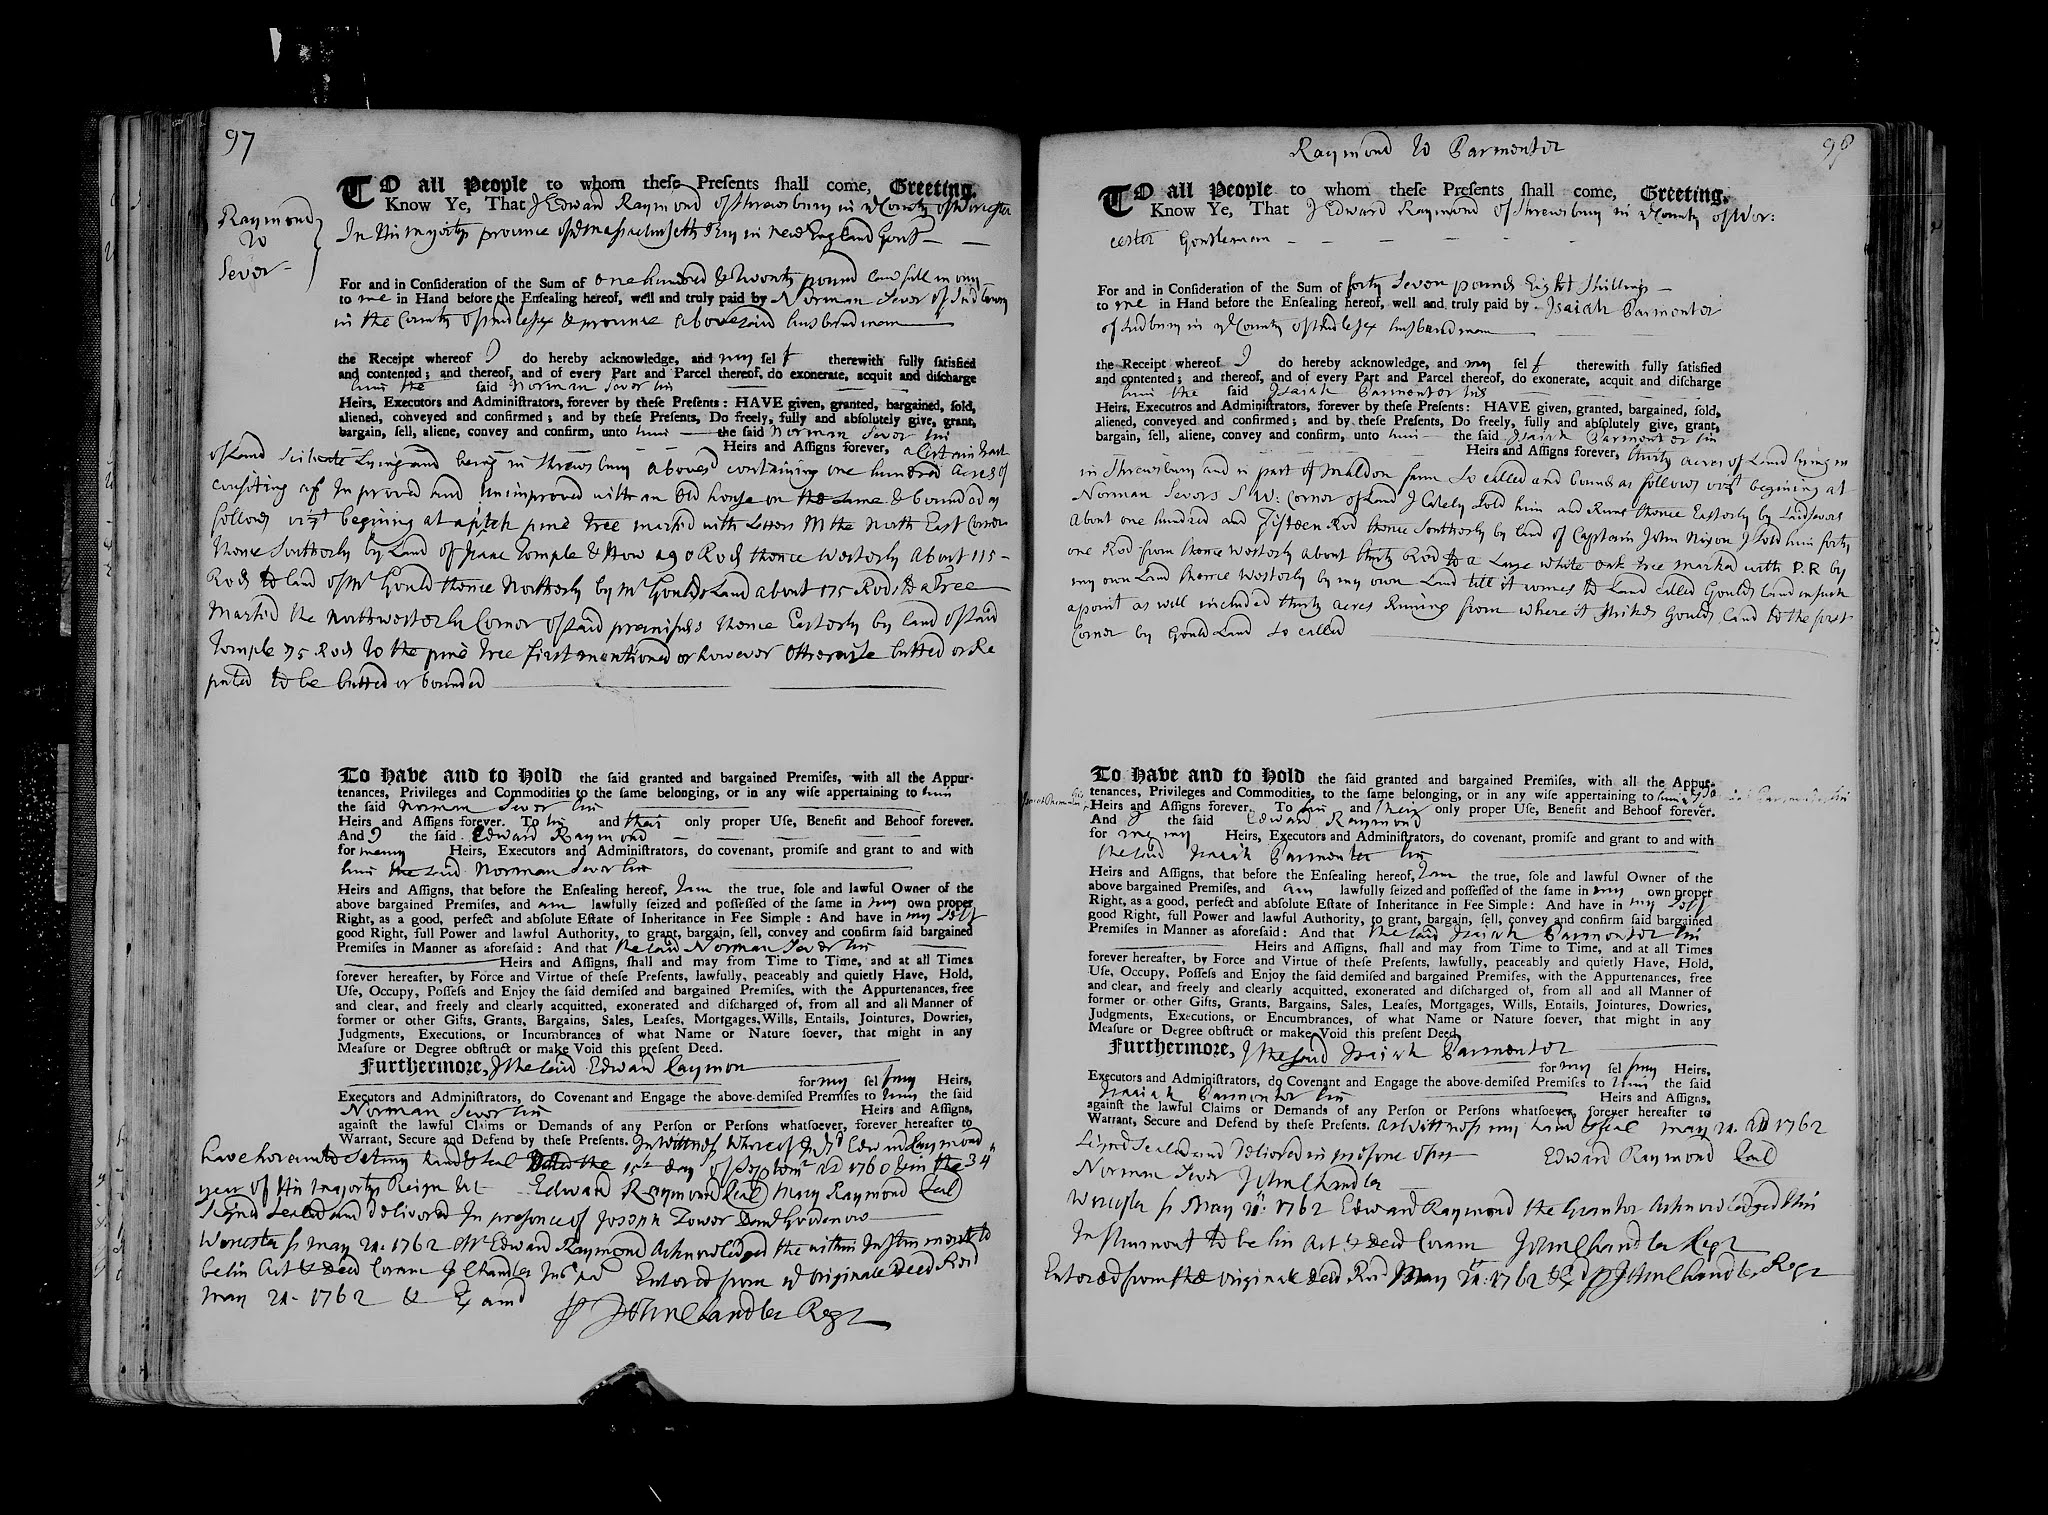 97
Raymond
to
Sever
TO all People to whom theſe Preſents ſhall come, Greeting.
Know Ye, That I Edward Raymond of Shrewsbury in ye County of Worcester
In His majestys province of ye massachusetts Bay in New England Gent
For and in Conſideration of the Sum of one hundred & twenty pound lawfull money
to me in Hand before the Enſealing hereof, well and truly paid by Norman Sever of Sudbury
in the County of midlesex & province abovesaid husbandman
the Receipt whereof I do hereby acknowledge, and my ſel f therewith fully ſatisfied
and contented; and thereof, and of every Part and Parcel thereof, do exonerate, acquit and diſcharge
him the ſaid Norman Sever his
Heirs, Executors and Adminiſtrators, forever by theſe Preſents: HAVE given, granted, bargained, ſold,
aliened, conveyed and confirmed; and by theſe Preſents, Do freely, fully and abſolutely give, grant,
bargain, ſell, aliene, convey and confirm, unto him the ſaid Norman Sever his
Heirs and Aſſigns forever, a Certain tract
of Land Scituate Lying and being in Shrewsbury abovesd containing one hundred acres of
consisting of Improved and Unimproved with an Old house on the same & bounded as
follows vizt begining at a pitch pine tree marked with Letters M the North East Corner
thence Southerly by Land of Isaac Temple & How 190 Rods thence Westerly About 115
Rods to land of Mr Gould thence Northerly by Mr Goulds Land about 175 Rods to a tree
marked the Northwesterly Corner of said premisses thence Easterly by land of said
Temple 75 Rods to the pine tree first mentioned or however otherwise butted or Re
puted to be butted or bounded
To Have and to Hold the ſaid granted and bargained Premiſes, with all the Appur-
tenances, Privileges and Commodities to the ſame belonging, or in any wiſe appertaining to him
the ſaid Norman Sever his
Heirs and Aſſigns forever. To his and their only proper Uſe, Benefit and Behoof forever.
And I the ſaid Edward Raymond
for me my Heirs, Executors and Adminiſtrators, do covenant, promiſe and grant to and with
him the said Norman Sever his
Heirs and Aſſigns, that before the Enſealing hereof, I am the true, ſole and lawful Owner of the
above bargained Premiſes, and am lawfully ſeized and poſſeſſed of the ſame in my own proper
Right, as a good, perfect and abſolute Eſtate of Inheritance in Fee Simple: And have in my Self
good Right, full Power and lawful Authority, to grant, bargain, ſell, convey and confirm ſaid bargained
Premiſes in Manner as aforeſaid: And that the said Norman Sever his
Heirs and Aſſigns, ſhall and may from Time to Time, and at all Times
forever hereafter, by Force and Virtue of theſe Preſents, lawfully, peaceably and quietly Have, Hold,
Uſe, Occupy, Poſſeſs and Enjoy the ſaid demiſed and bargained Premiſes, with the Appurtenances, free
and clear, and freely and clearly acquitted, exonerated and diſcharged of, from all and all Manner of
former or other Gifts, Grants, Bargains, Sales, Leaſes, Mortgages, Wills, Entails, Jointures, Dowries,
Judgments, Executions, or Incumbrances of what Name or Nature ſoever, that might in any
Meaſure or Degree obſtruct or make Void this preſent Deed.
Furthermore, I the said Edward Raymon
for my ſel f my Heirs,
Executors and Adminiſtrators, do Covenant and Engage the above-demiſed Premiſes to him the ſaid
Norman Sever his Heirs and Aſſigns,
againſt the lawful Claims or Demands of any Perſon or Perſons whatſoever, forever hereafter to
Warrant, Secure and Defend by theſe Preſents. In Wittness Whereof I ye sd Edward Raymond
have hereunto set my hand & seal Dated the 15t day of Septemr AD 1760 & in the 34th
year of His majestys Reign &c Edward Raymond Seal Mary Raymond Seal
Signed sealed and delivered In presence of Joseph Tower David Goodenow
Worcester ss May 21. 1762 Mr Edward Raymond Acknowledged the within Instrument to
be his Act & Deed Coram J Chandler Jus pa Entered from ye originale Deed Recd
May 21. 1762 & Examd
p John Chandler Regr
Raymond to Parmenter
98
TO all People to whom theſe Preſents ſhall come, Greeting.
Know Ye, That I Edward Raymond of Shrewsbury in ye County of Wor:
cester Gentleman
For and in Conſideration of the Sum of forty Seven pounds Eight Shillings
to me in Hand before the Enſealing hereof, well and truly paid by Isaiah Parmenter
of Sudbury in ye County of midlesex husbandman
the Receipt whereof I do hereby acknowledge, and my ſel f therewith fully ſatisfied
and contented; and thereof, and of every Part and Parcel thereof, do exonerate, acquit and diſcharge
him the ſaid Isaiah Parmenter his
Heirs, Executros and Adminiſtrators, forever by theſe Preſents: HAVE given, granted, bargained, ſold,
aliened, conveyed and confirmed; and by theſe Preſents, Do freely, fully and abſolutely give, grant,
bargain, ſell, aliene, convey and confirm, unto him the ſaid Isaiah Parmenter his
Heirs and Aſſigns forever, thirty acres of Land lying in
in Shrewsbury and is part of Maldon farm So called and bounds as follows vizt begining at
Norman Severs S W: Corner of Land I Lately Sold him and Runs thence Easterly by Land Severs
About one hundred and fifteen Rod thence Southerly by land of Captain John Nixon I Sold him forty
one Rod from thence Westerly about thirty Rod to a Large white oak tree marked with P. R by
my own Land thence Westerly by my own Land till it comes to Land called Goulds land in such
a point as will included thirty acres Runing from where it strikes Goulds land to the first
Corner by Gould Land So called
To Have and to Hold the ſaid granted and bargained Premiſes, with all the Appur-
tenances, Privileges and Commodities, to the ſame belonging, or in any wiſe appertaining to him
Heirs and Aſſigns forever. To his and their only proper Uſe, Benefit and Behoof forever.
And I the ſaid Edward Raymond
for me my Heirs, Executors and Adminiſtrators, do covenant, promiſe and grant to and with
the said Isaiah Parmenter his
Heirs and Aſſigns, that before the Enſealing hereof, I am the true, ſole and lawful Owner of the
above bargained Premiſes, and am lawfully ſeized and poſſeſſed of the ſame in my own proper
Right, as a good, perfect and abſolute Eſtate of Inheritance in Fee Simple: And have in my Self
good Right, full Power and lawful Authority, to grant, bargain, ſell, convey and confirm ſaid bargained
Premiſes in Manner as aforeſaid: And that the said Isaiah Parmenter his
Heirs and Aſſigns, ſhall and may from Time to Time, and at all Times
forever hereafter, by Force and Virtue of theſe Preſents, lawfully, peaceably and quietly Have, Hold,
Uſe, Occupy, Poſſeſs and Enjoy the ſaid demiſed and bargained Premiſes, with the Appurtenances, free
and clear, and freely and clearly acquitted, exonerated and diſcharged of, from all and all Manner of
former or other Gifts, Grants, Bargains, Sales, Leaſes, Mortgages, Wills, Entails, Jointures, Dowries,
Judgments, Executions, or Encumbrances, of what Name or Nature ſoever, that might in any
Meaſure or Degree obſtruct or make Void this preſent Deed,
Furthermore, I the said Isaiah Parmenter
for my ſel f my Heirs,
Executors and Adminiſtrators, do Covenant and Engage the above-demiſed Premiſes to him the ſaid
Isaiah Parmenter his Heirs and Aſſigns,
againſt the lawful Claims or Demands of any Perſon or Perſons whatſoever, forever hereafter to
Warrant, Secure and Defend by theſe Preſents. As Wittness my hand & seal May 21. AD 1762
Signd Sealed and Delivered in presence of us Edward Raymond Seal
Norman Sever John Chandler
Worcester ss May 21: 1762 Edward Raymond the Grantor Acknowledged this
Instrument to be his Act & Deed Coram John Chandler Regr
Entered from the originale Deed Recd May 21: 1762 & Exd p John Chandler Regr